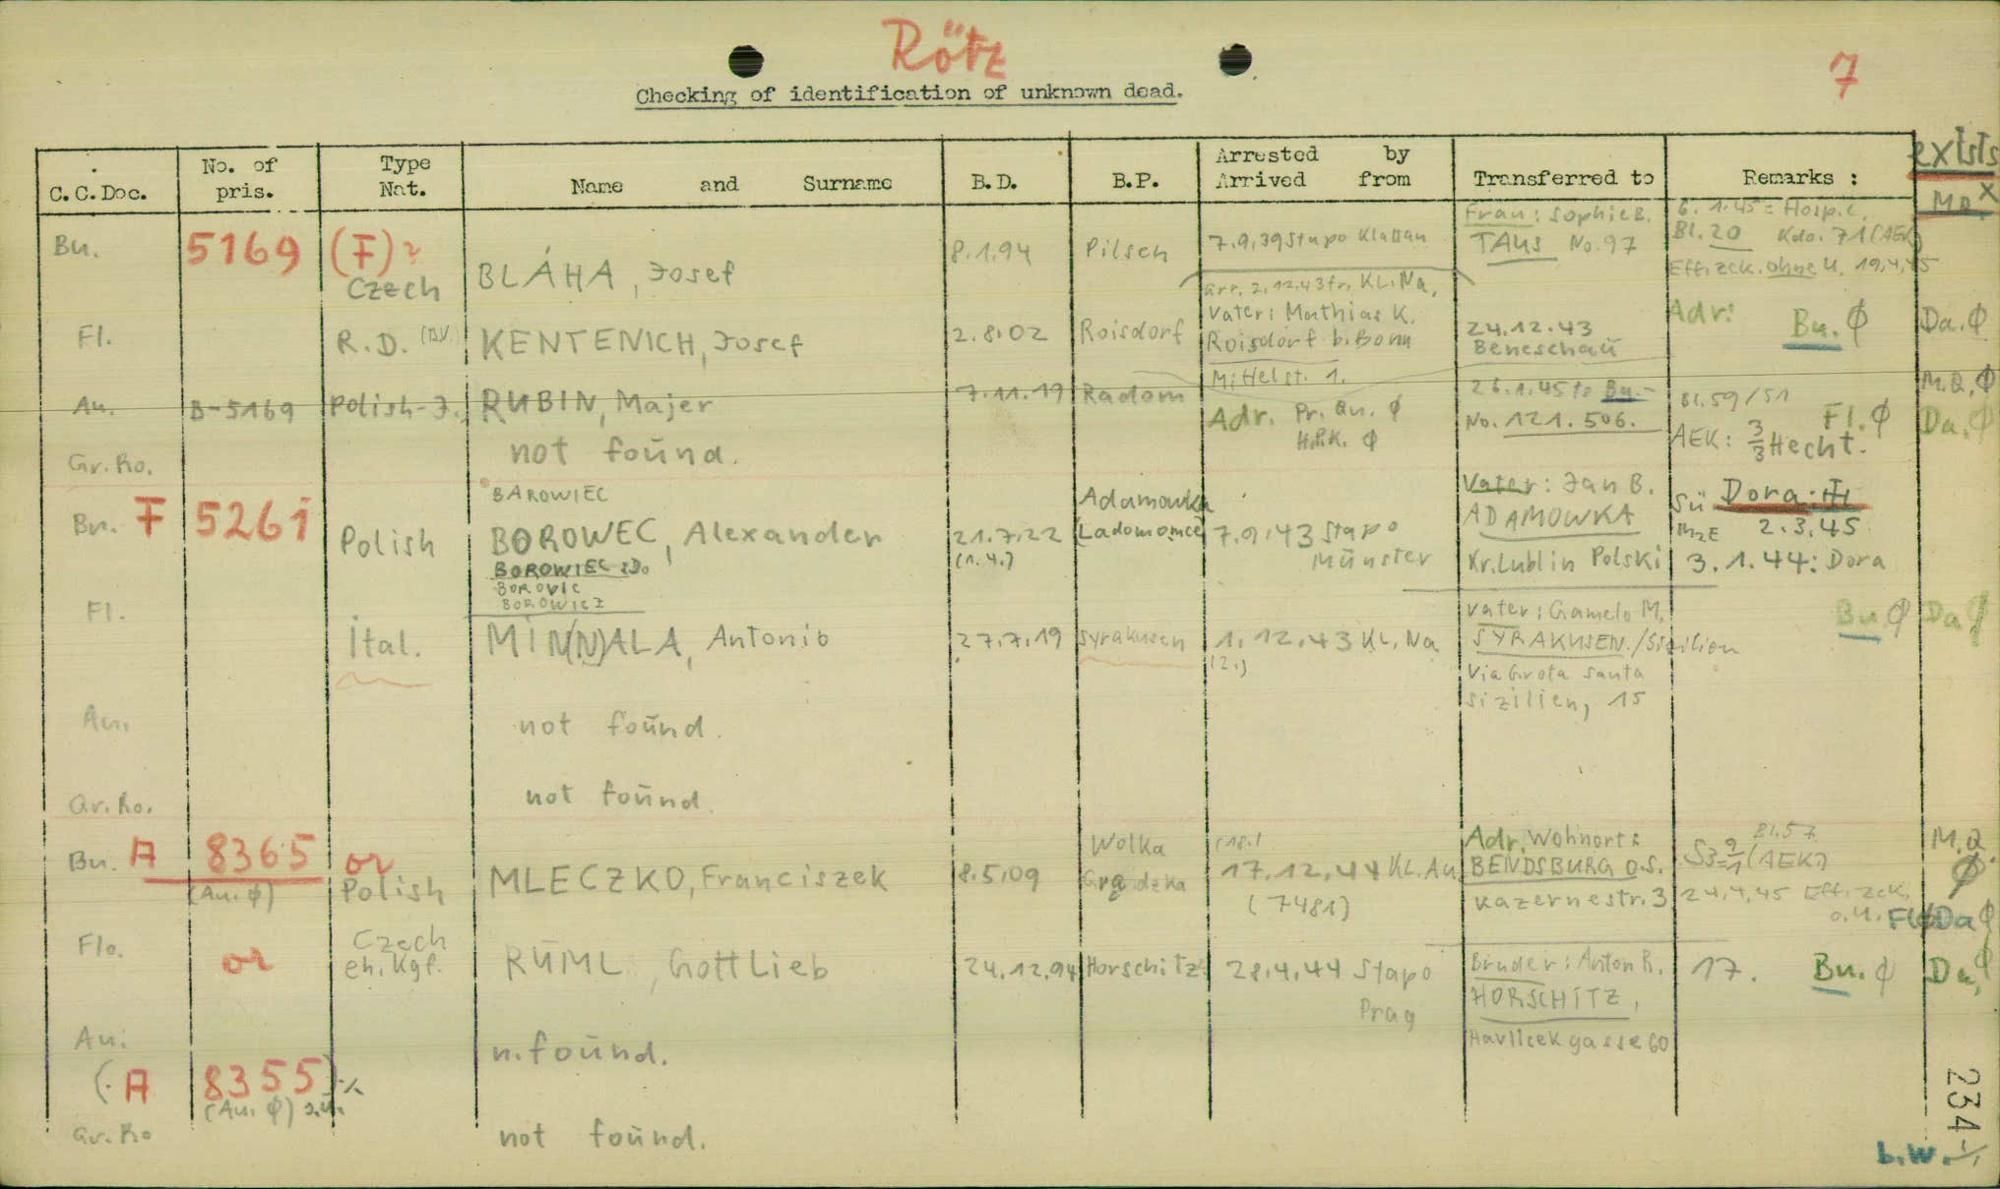 Rötz
7
Checking of identification of unknown dead.
C.C.Doc. No. of pris. Type Nat. Name and Surname B.D. B.P. Arrested by Arrived from Transferred to Remarks : exists
M.Q. X
Bu. 5169 (F)? Czech BLÁHA, Josef 8.1.94 Pilsen 7.9.39 Stapo Klattau Frau: Sophie B. TAUS No. 97 6.1.45 = Hospit.
Bl. 20 Kdo. 71 (AEK)
Eff.zck. ohne U. 19.4.45
Fl. R.D. (BV) KENTENICH, Josef 2.8.02 Roisdorf arr. 2.12.43 fr. KL. Na.
Vater: Mathias K.
Roisdorf b. Bonn
Mittelst. 1.
24.12.43
Beneschau
Adr: Bu. Ø Da. Ø
Au. B-5169 Polish-J. RUBIN, Majer 7.11.19 Radom 26.1.45 to Bu.-
No. 121.506.
Adr. Pr. Qu. Ø
H.P.K. Ø
Bl. 59/51
AEK: 3/3 Hecht.
Fl. Ø M.Q. Ø
Da. Ø
Gr.Ro. not found.
BAROWIEC
Bu. F 5261 Polish BOROWEC, Alexander 21.7.22
(1.4.)
Adamowka
(Ladomomce)
7.9.43 Stapo
Münster
Vater: Jan B.
ADAMOWKA
Kr. Lublin Polski
Sü Dora:
2.3.45
3.1.44: Dora
BOROWIEC
BOROVIC
BOROWICZ
Fl. Ital. MIN(N)ALA, Antonio 27.7.19 Syrakusen 1.12.43 KL. Na
(2.)
Vater: Gamelo M.
SYRAKUSEN./Sizilien
Via Grota Santa
Sizilien, 15
Bu. Ø Da Ø
Au. not found.
Gr.Ro. not found.
Bu. A 8365 or
(Au. Ø) Polish MLECZKO, Franciszek 8.5.09 Wolka
Gradzka
(18.)
17.12.44 KL. Au
(7481)
Adr. Wohnort:
BENDSBURG O.S.
Kazernestr. 3
Bl. 57
(AEK?)
24.4.45 Eff. zck.
o.U. Fl Ø Da Ø
M.Q.
Ø
Flo. or Czech
eh. Kgf. RUML, Gottlieb 24.12.94 Horschitz 28.4.44 Stapo
Prag
Bruder: Anton R.
HORSCHITZ,
Havlicekgasse 60
17. Bu. Ø Da. Ø
Au. n.found.
(A 8355)
(Au. Ø) s.u.
Gr.Ro not found.
234
b.w.